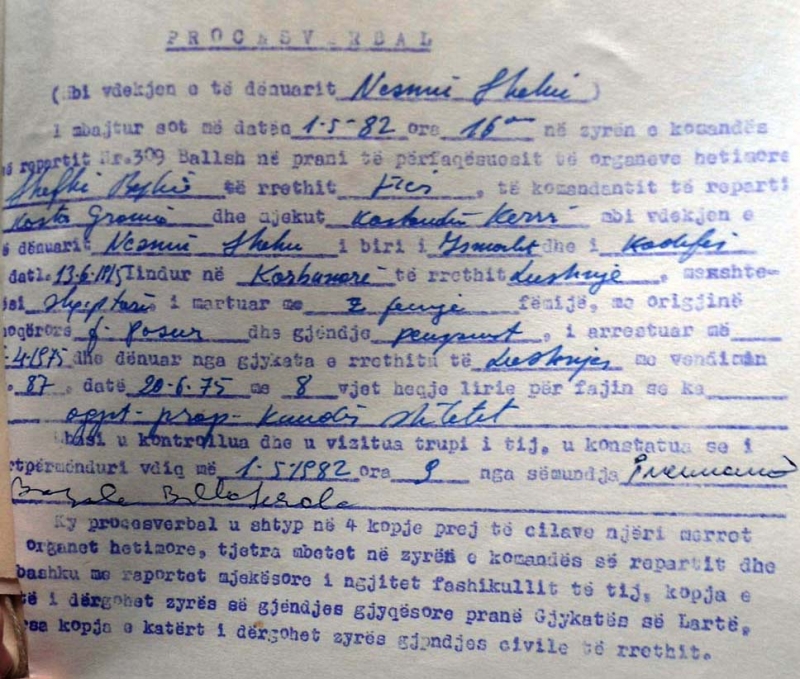 PROCESVERBAL
(Mbi vdekjen e të dënuarit Nesmi Shehu )
I mbajtur sot më datën 1-5-82 ora 16 në zyrën e komandës
së repartit Nr.309 Ballsh në prani të përfaqësuesit të organeve hetimore
të rrethit Fier , të komandantit të reparti
Kosta dhe mjekut Kostandin mbi vdekjen e
dënuarit Nesmi Shehu i biri i Ismailit dhe i
datl. lindur në Karbunarë të rrethit Lushnje , mëkshtë-
ësi shqiptare i martuar me 2 fëmijë, me origjinë
oqërore f. pasur dhe gjëndje , i arrestuar më
4-1975 dhe dënuar nga gjykata e rrethit të Lushnjes me vendimin
87 . datë 20-6-75 me 8 vjet heqje lirie për fajin se ka
agjit-prop- kundër shtetit
Mbasi u kontrollua dhe u vizitua trupi i tij, u konstatua se i
tpërmënduri vdiq më 1-5-1982 ora 9 nga sëmundja
Ky procesverbal u shtyp në 4 kopje prej të cilave njëri merret
organet hetimore, tjetra mbetet në zyrën e komandës së repartit dhe
bashku me raportet mjekësore i ngjitet fashikullit të tij, kopja e
të i dërgohet zyrës së gjëndjes gjyqësore pranë Gjykatës së Lartë,
rsa kopja e katërt i dërgohet zyrës gjëndjes civile të rrethit.